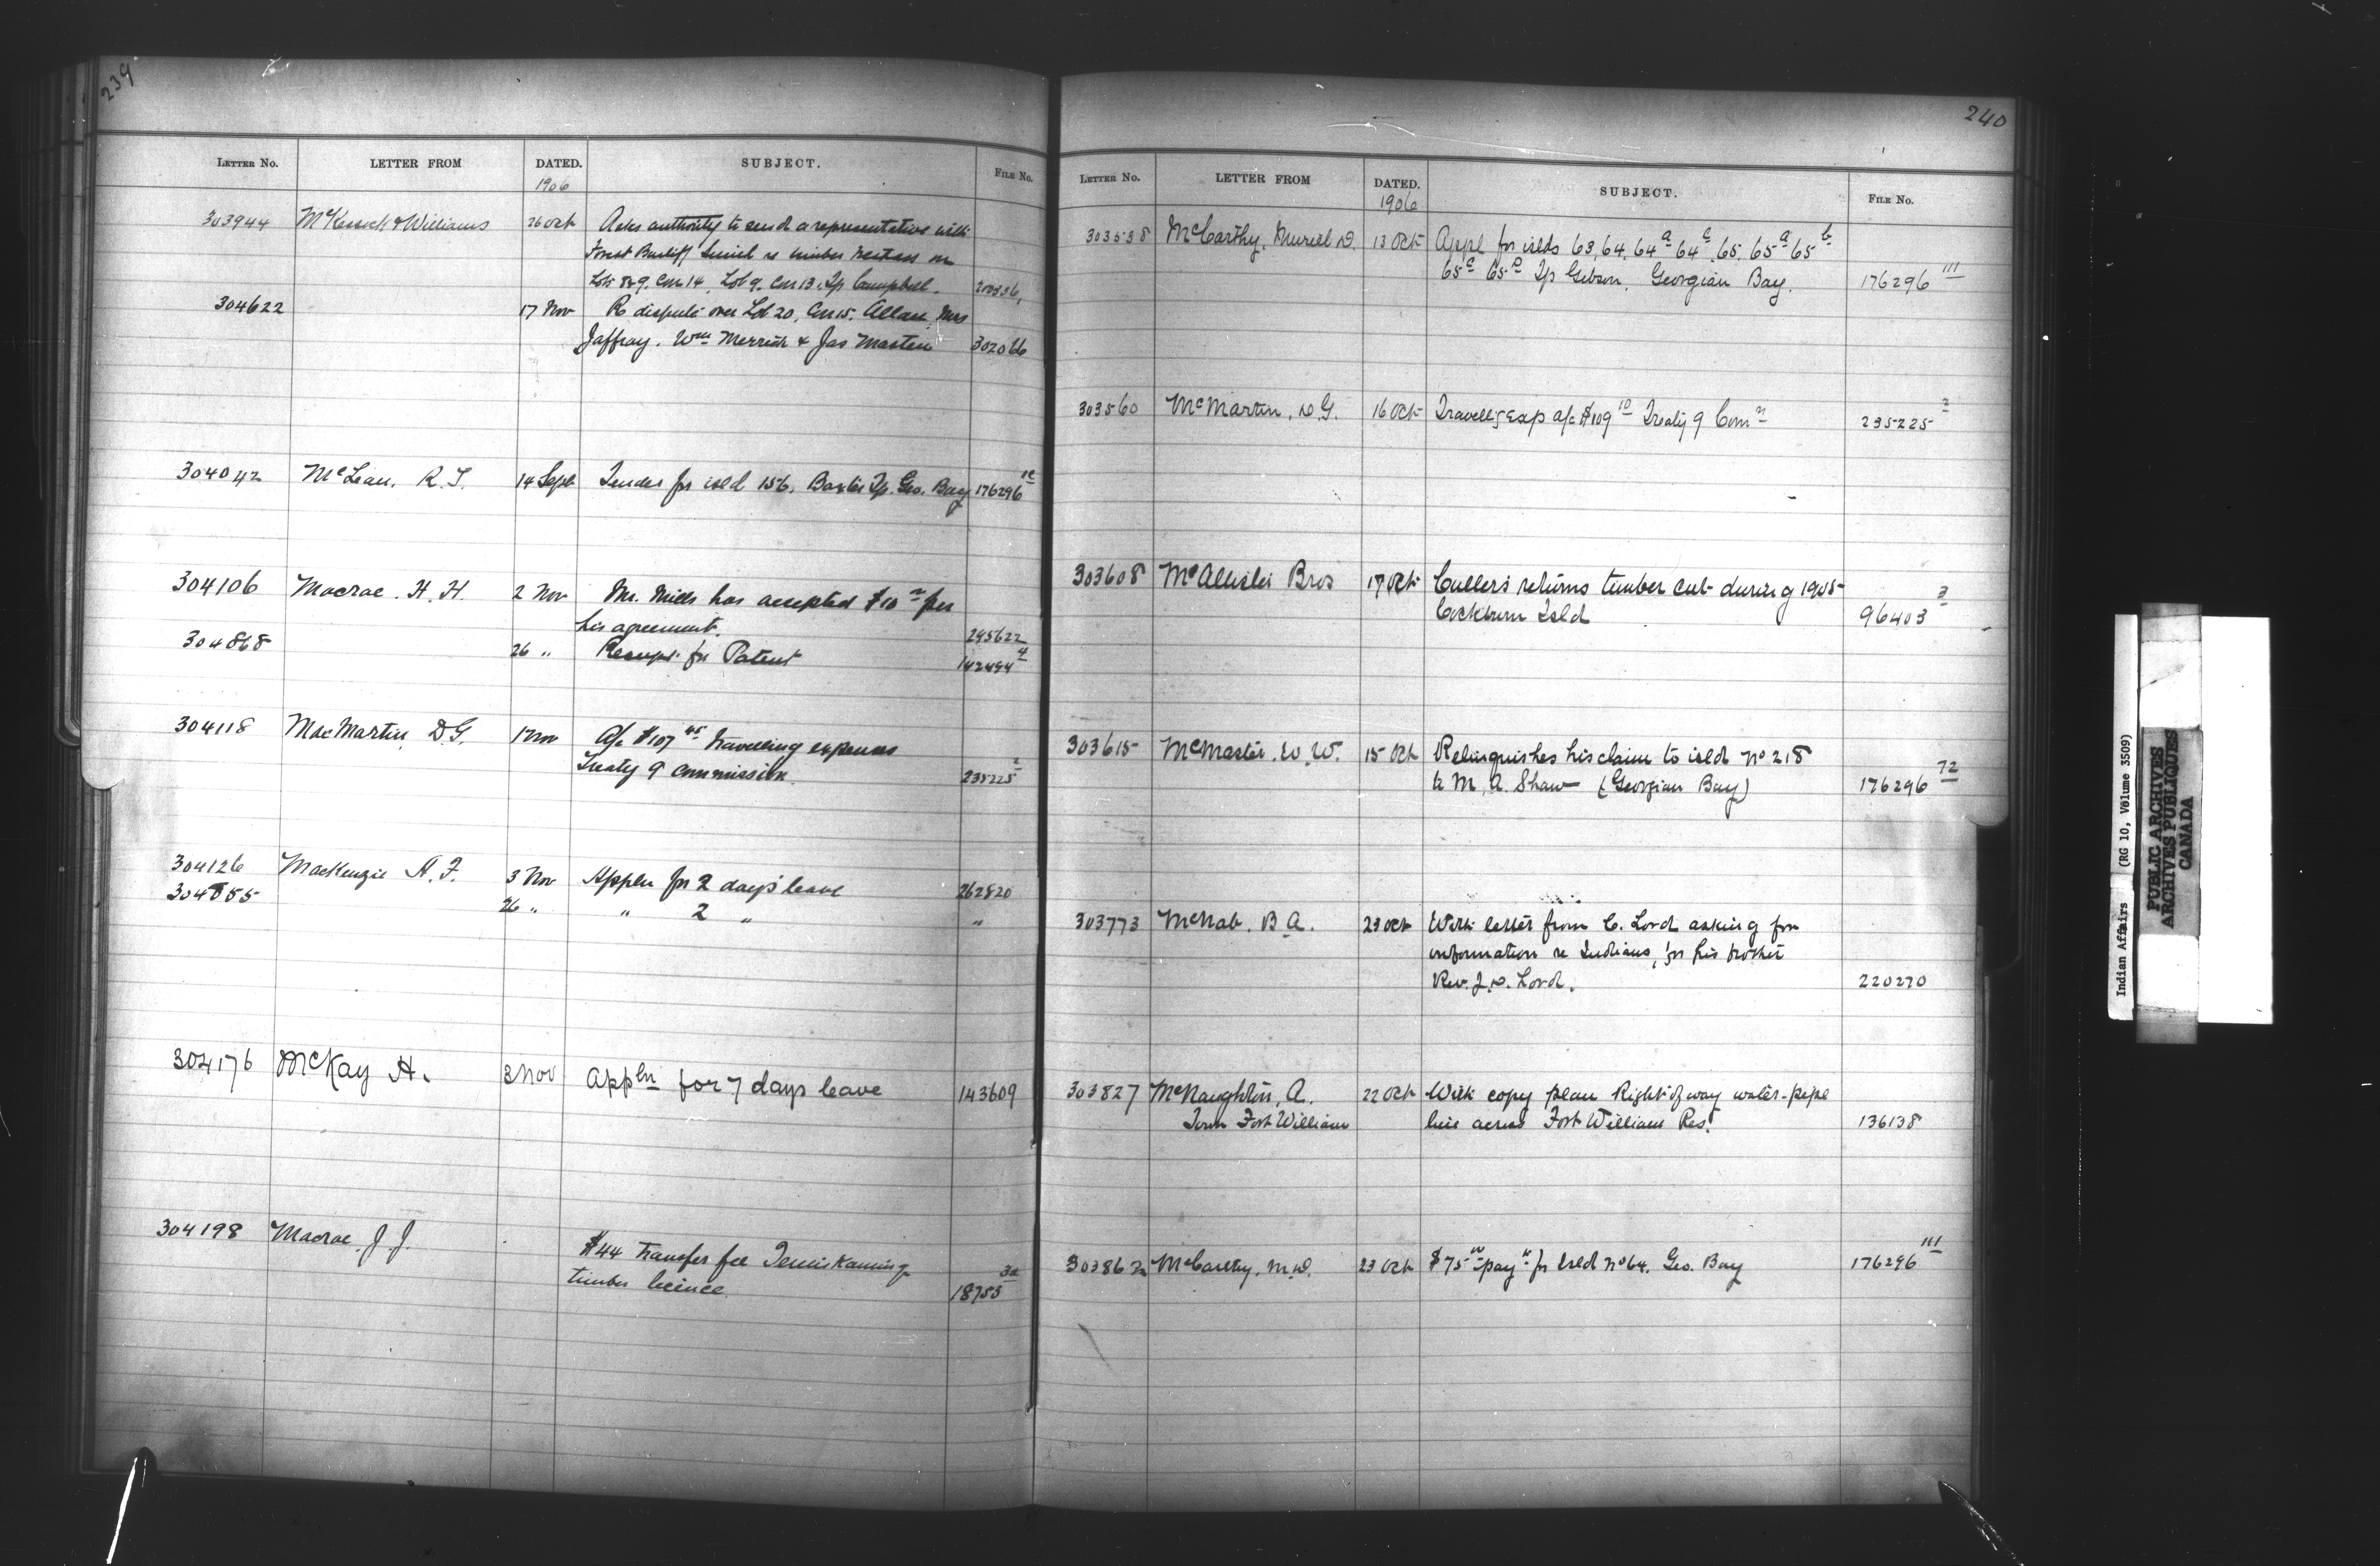 239
LETTER NO. LETTER FROM DATED. SUBJECT. FILE NO.
1906
303944 McKessock & Williams 26 Oct Asks authority to send a representative with
Forest Bailiff re timber on
Lots 8 & 9. Con 14, Lot 9. Con 13. Tp Campbell.
304622 17 Nov Re dispute over Lot 20, Con 15. Allan, Mrs
Jaffray. Wm Merrick & Jas Masten 302066
304042 McLean. R.T. 14 Sept Tender for isld 156. Baxter Tp. Geo. Bay 176296
304106 Macrae. H. H. 2 Nov Mr. Mills has accepted $10 per
his agreement. 245622
304868 26 " Receipt for Patent 142494 4
304118 MacMartin D.G. 1 Nov A/c $107 45 travelling expenses
Treaty 9 commission. 235225 2
304126 MacKenzie A.F. 3 Nov Appln for 2 days' leave 262820
304855 26 " " 2 " "
304176 McKay A. 3 Nov Appln for 7 days leave 143609
304198 Macrae. J.J. $44 transfer fee Temiskaming
timber licence. 18753 30
240
LETTER NO. LETTER FROM DATED. SUBJECT. FILE NO.
1906
303538 McCarthy, Muriel D. 13 Oct Appl for islds 63, 64, 64a 64c, 65, 65a 65b
65c 65D Tp Gibson. Georgian Bay. 176296 111
303560 McMartin, D.G. 16 Oct Travellg Exp a/c $109 10 Treaty 9 Comn 235225 2
303608 McAllister Bros 17 Oct Culler's returns timber cut during 1905
Cockburn Isld 96403 3
303615 McMaster. W.W. 15 Oct Relinquishes his claim to isld No 218
to M. A. Shaw (Georgian Bay) 176296 72
303773 McNab. B.A. 23 Oct With letter from C. Lord asking for
information re Indians, for his brother
Rev. J.D. Lord. 220270
303827 McNaughton, A. 22 Oct With copy plan Right of way water-pipe
Town Fort William line across Fort William Res. 136138
303862 McCarthy. M.D. 23 Oct $75 00 payt for Isld No 64. Geo. Bay 176296 111
Indian Affairs (RG 10, Volume 3509)
PUBLIC ARCHIVES
ARCHIVES PUBLIQUES
CANADA